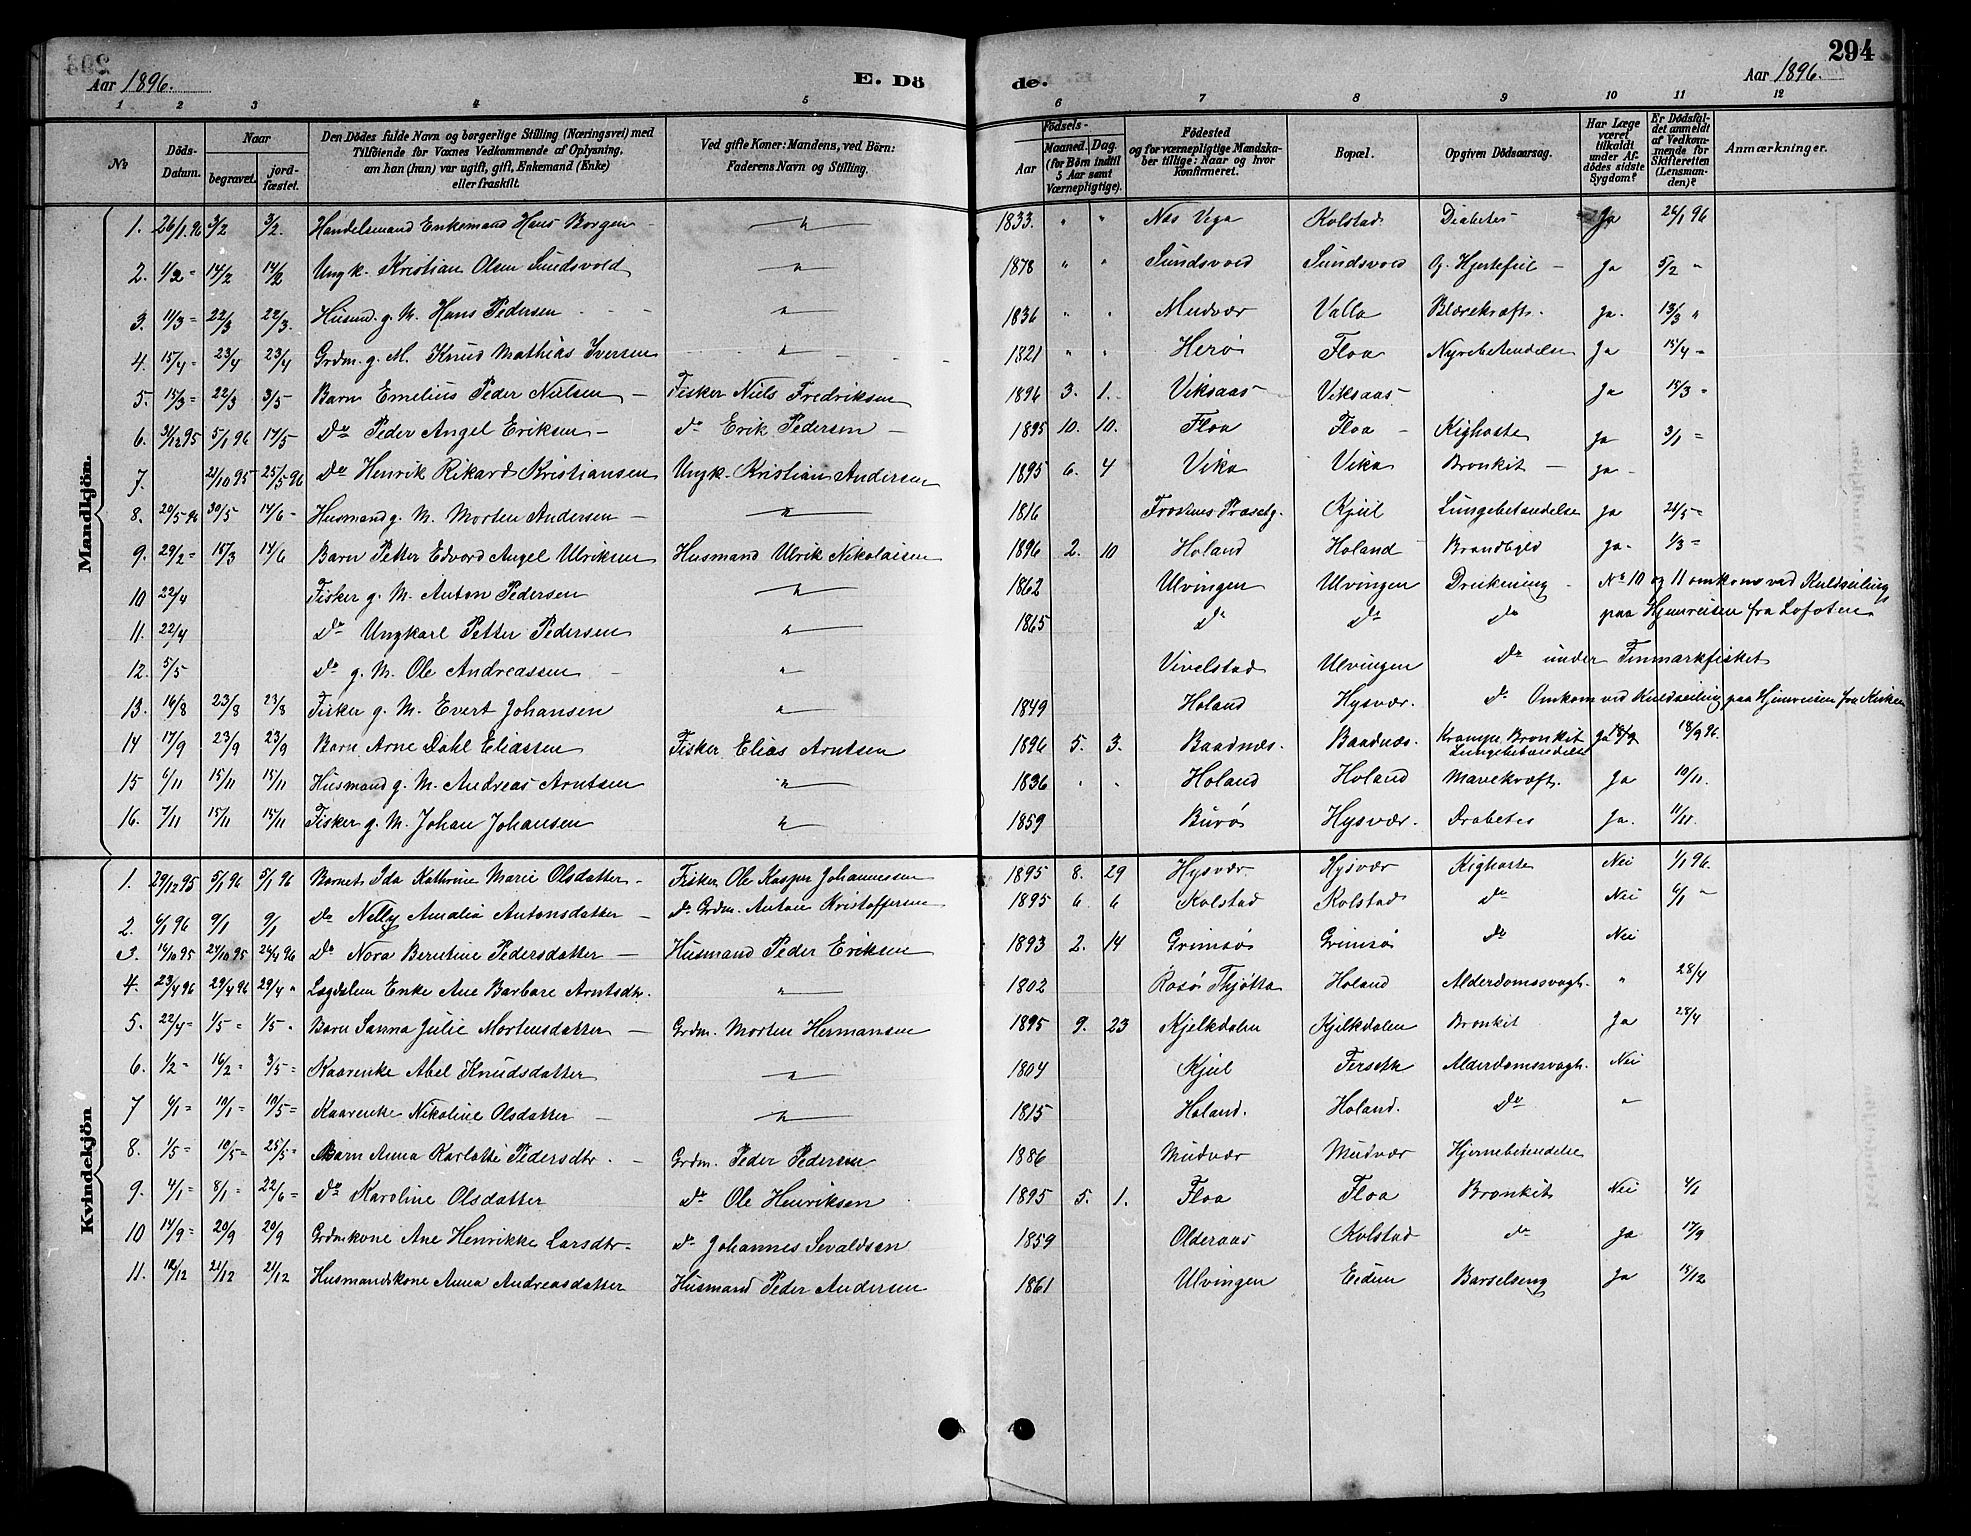 294
Aar 1896. E. Dö de. Aar 1896.
1 2 3 4 5 6 7 8 9 10 11 12
No
Döds-Datum.
Naar
begravet.
jordfæstet.
Den Dödes fulde Navn og borgerlige Stilling (Næringsvei) med
Tilföiende for Voxnes Vedkommende af Oplysning,
om han (hun) var ugift, gift, Enkemand (Enke)
eller fraskilt.
Ved gifte Koner: Mandens, ved Börn:
Faderens Navn og Stilling.
Födsels-
Aar
Maaned. Dag.
(for Börn indtil
5 Aar samt
Værnepligtige).
Födested
og for værnepligtige Mandskaber tillige: Naar og hvor
konfirmeret.
Bopæl.
Opgiven Dödsaarsag.
Har Læge
været
tilkaldt
under Afdödes sidste
Sygdom?
Er Dödsfaldet anmeldt
af Vedkommende for
Skifteretten
(Lensmanden)?
Anmærkninger.
Mandkjön.
1. 26/1 96 3/2 3/2. Handelsmand Enkemand Hans Borgen - " 1833. " " Næs Vega Kolstad Diabetes Ja 26/1 96
2. 1/2 = 14/2 14/2 Ungk. Kristian Olsen Sundsvold " 1878 " " Sundsvold Sundsvold O. Hjertefeil - Ja 5/2 "
3. 11/3 = 22/3 22/3. Husmd. g. M. Hans Pedersen " 1836 " " Mudvær Valla Blærekræft. Ja. 13/3 "
4. 15/4 = 23/4 23/4 Grdm. g. M. Knud Mathias Iversen " 1821 " " Herø Floa Nyrebetendelse Ja 15/4 =
5. 15/3 = 22/3 3/5 Barn Emelius Peder Nielsen - Fisker Niels Fredriksen 1896 3. 1. Viksaas Viksaas Ja 15/3 =
6. 31/12 95 5/1 96 17/5 Do Peder Angel Eriksen - Do Erik Pedersen - 1895 10. 10. Floa Floa - Kighoste Ja 3/1 =
7. 21/10 95 25/5 96 Do Henrik Rikard Kristiansen Ungk. Kristian Andersen 1895 6. 4 Vika Vika Bronkit - ja -
8. 20/5 96 30/5 14/6 - Husmand g. M. Morten Andersen - " 1816 Præstg. Kjul Lungebetendelse Ja 21/5 =
9. 29/2 = 15/3 14/6 Barn Petter Edvard Angel Ulriksen Husmand Ulrik Nikolaisen 1896 2. 10 Holand Holand Brandbyld Ja. 1/3 =
10 22/4 Fisker g. M. Anton Pedersen " 1862 Ulvingen Ulvingen Drukning - No 10 og 11 omkom ved Kuldseiling
11. 22/4 Do Ungkarl Petter Pedersen " 1865 Do Do Do paa Hjemreisen fra Lofoten
12. 5/5 Do g. M. Ole Andreassen " Vivelstad Ulvingen Do under Finmarkfisket
13. 16/8 23/8 23/8 Fisker g. M. Evert Johansen " 1849 Holand Hysvær. Do Omkom ved Kuldseiling paa Hjemreisen fra Kirken
14 17/9 23/9 23/9. Barn Arne Dahl Eliassen Fisker Elias Arntsen 1896 5. 3. Baadnæs. Baadnæs. Krampe, Bronkit Lungebetendelse Ja 18/9 18/9 96.
15 6/11 15/11 15/11 Husmand g. M. Andreas Arntsen " 1836 " " Holand Holand Mavekræft. Ja 10/11.
16. 7/11 15/11 15/11 Fisker g. M. Johan Johansen " 1859 Burø Hysvær. Diabetes Ja. 11/11.
Kvindekjön
1. 29/12 95 5/1 96 5/1 96 Barnet Ida Kathrine Marie Olsdatter - Fisker Ole Kasper Johannesen 1895 8. 29 Hysvær Hysvær Kighoste Nei 1/1 96.
2. 6/1 96 9/1 9/1 Do Nelly Amalia Antonsdatter - Do Grdm. Anton Kristoffersen 1895 6. 6 Kolstad Kolstad Do Nei 6/1 "
3. 14/10 95 24/10 95 24/4 96 Do Nora Berntine Pedersdatter - Husmand Peder Eriksen 1893 2. 14 Grimsø Grimsø Do Nei
4. 23/4 96 29/4 96 29/4 " Lægdslem Enke Ane Barbare Arntsdtr. " 1802 Rosø Thjøtta Holand Alderdomssvagh. " 28/4
5. 22/4 = 1/5 = 1/5 = Barn Sanna Julie Mortensdatter - Grdm. Morten Hermansen 1895 9. 23 Kjelkdalen Kjelkdalen Bronkit Ja 28/4
6. 1/2 = 16/2 = 3/5 = Kaarenke Abel Knudsdatter " 1804 Kjul Forseth Alderdomssvagh. Nei
7 6/1 = 19/1 = 10/5 = Kaarenke Nikoline Olsdatter - " 1815 Holand. Holand. Do "
8. 1/5 = 10/5 = 25/5 = Barn Anna Karlotte Pedersdtr. - Grdm. Peder Pedersen 1886 Mudvær Mudvær Hjernebetendelse
9. 4/1 = 8/1 = 22/6 = Do Karoline Olsdatter Do Ole Henriksen 1895 5. 1. Floa Floa Bronkit Nei 4/1
10 14/9 = 20/9 20/9 Grdmkone Ane Henrikke Larsdtr - Do Johannes Sevaldsen 1859 Olderaas Kolstad Do Ja 17/9
11. 12/12 21/12 21/12 Husmandskone Anna Andreasdatter Husmand Peder Andersen 1861 Ulvingen Eidem Barselseng Ja 15/12